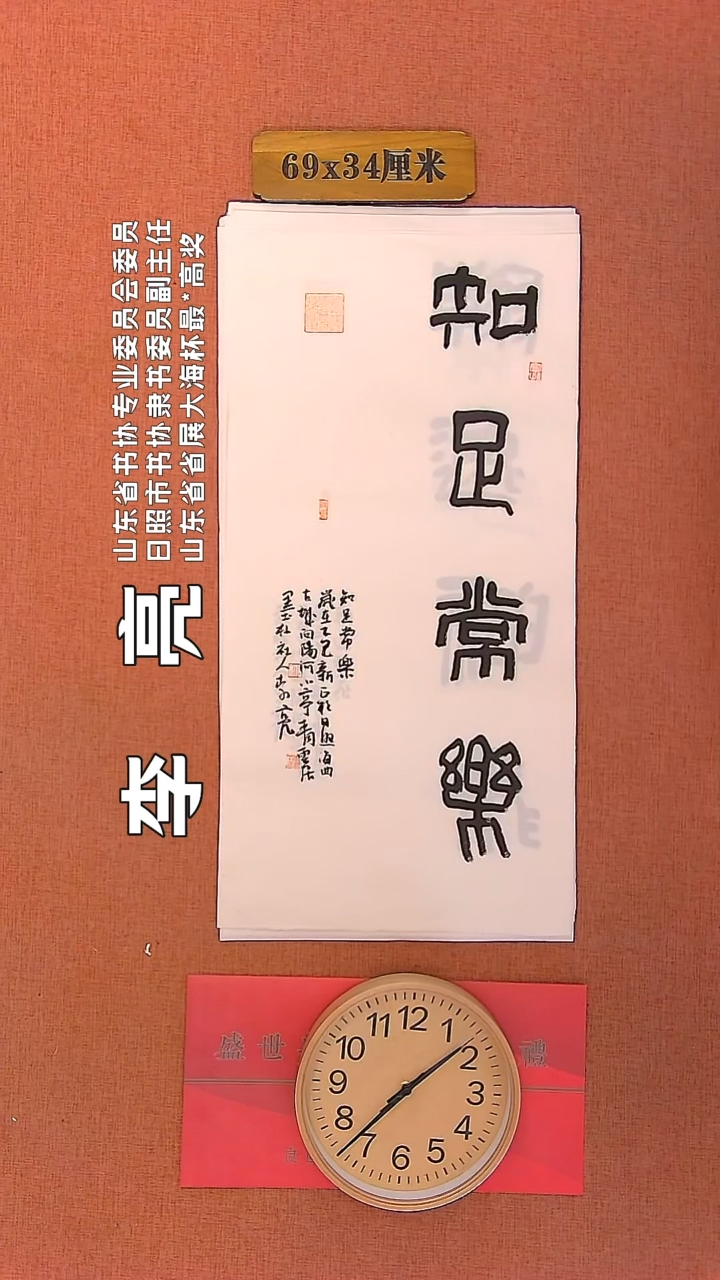 69x34厘米
山东省书协专业委员会委员
日照市书协隶书委员副主任
山东省省展大海杯最*高奖
李亮
知足常樂
知足常樂
歲在乙巳新正於日照海曲
古城向陽河小亭
墨
盛世
禮
11 12 1
10 2
9 3
8 4
7 6 5